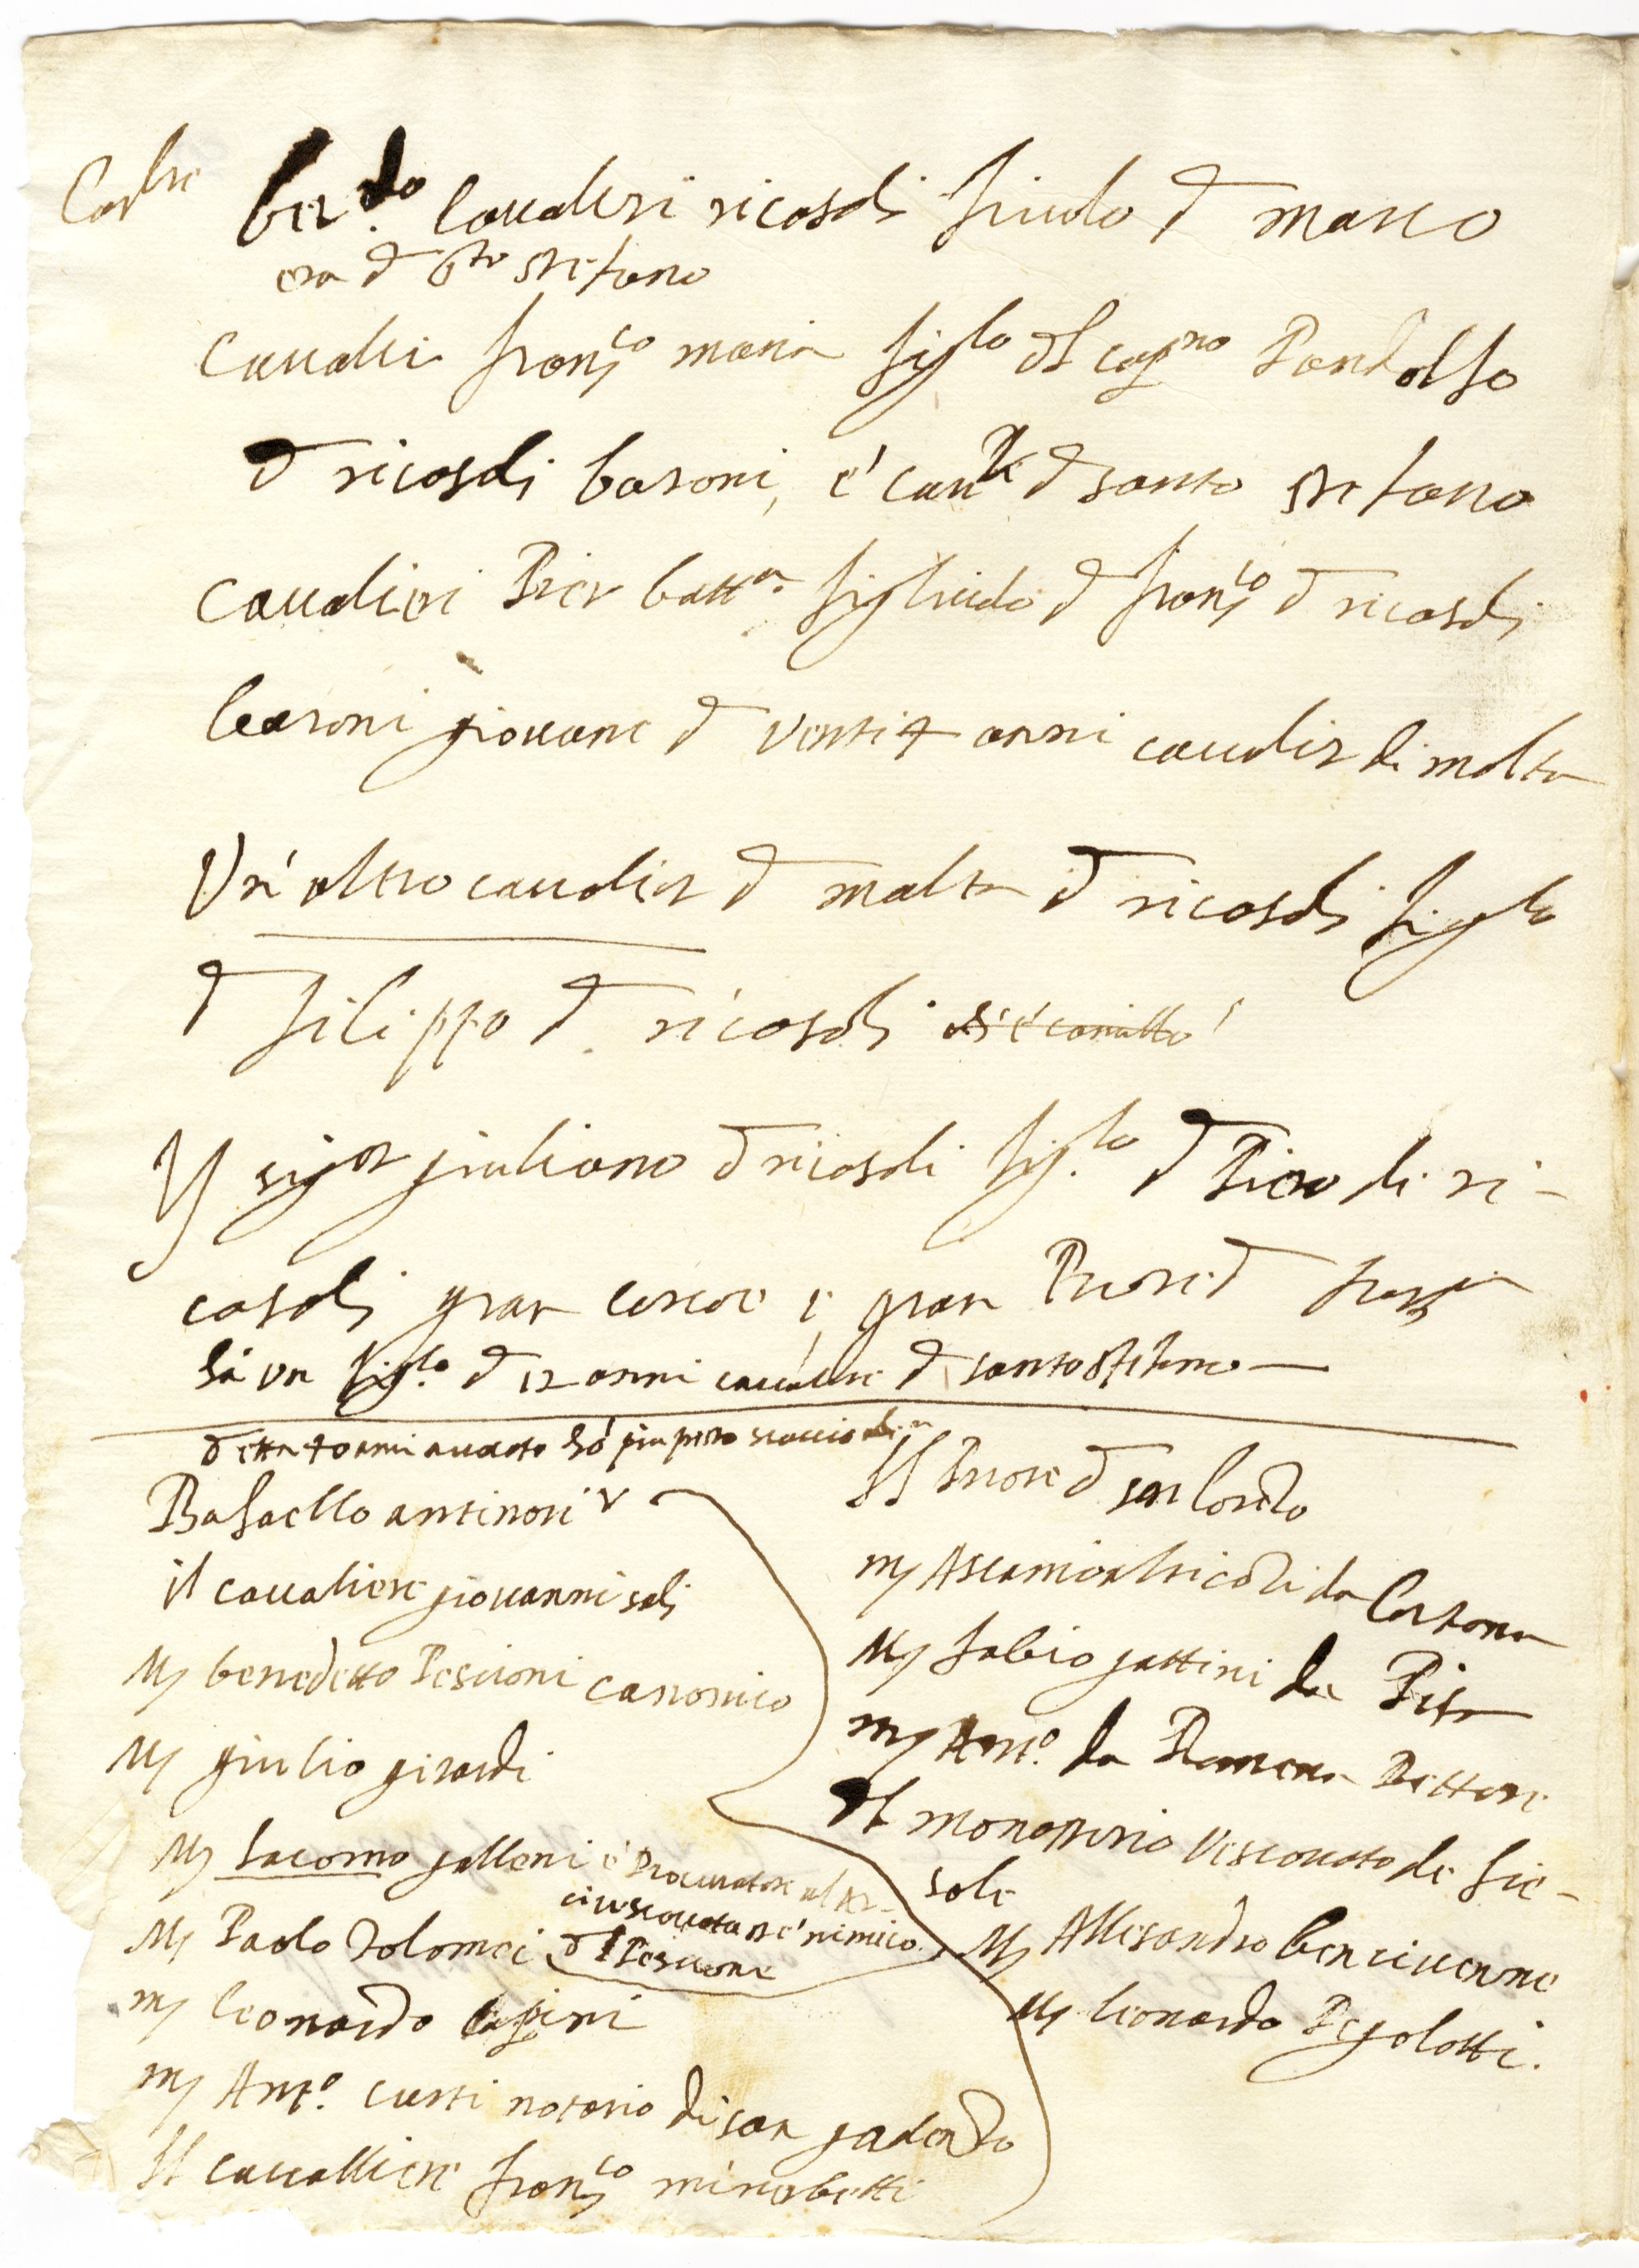 Cav.re ber.do Cavaleri ricasoli d marco
era d s.to stefano
Cavalie franc.o maria figlo dl cap.no Pandolfo
d ricasoli baroni, e' d santo stefano
Cavalieri Pier batt.a d franc.o d ricasoli
baroni giovane d venti4 anni cavalier di malta
Un' altro cavalier d malta d ricasoli figlo
d filippo d ricasoli
Il sig.or giuliano d ricasoli fig.lo d Piero di ri-
casoli gran e gran Priore d
hà un fig.lo d 12 anni cavaliere d santo stefano
d età 40 anni ho più presto
Rafaello antinori
il cavaliere giovanni sali
M benedetto Pescioni canonico
M giulio girardi
M Iacomo galleni è Procuratore al Ar-
civescovato et è nimico
dl Pescione
M Paolo Tolomei
M leonardo lapini
M Ant.o curti notario di san gadendo
Il cavalliere franc.o minerbetti
Il Priore d san lor.do
M Ascanio da Cortona
M fabio gattini da Pisa
M Ant.o da Romena Rettore
dl monasterio Vescovato di fie-
sole
M Allesandro bencivenne
M leonardo Pegolotti.